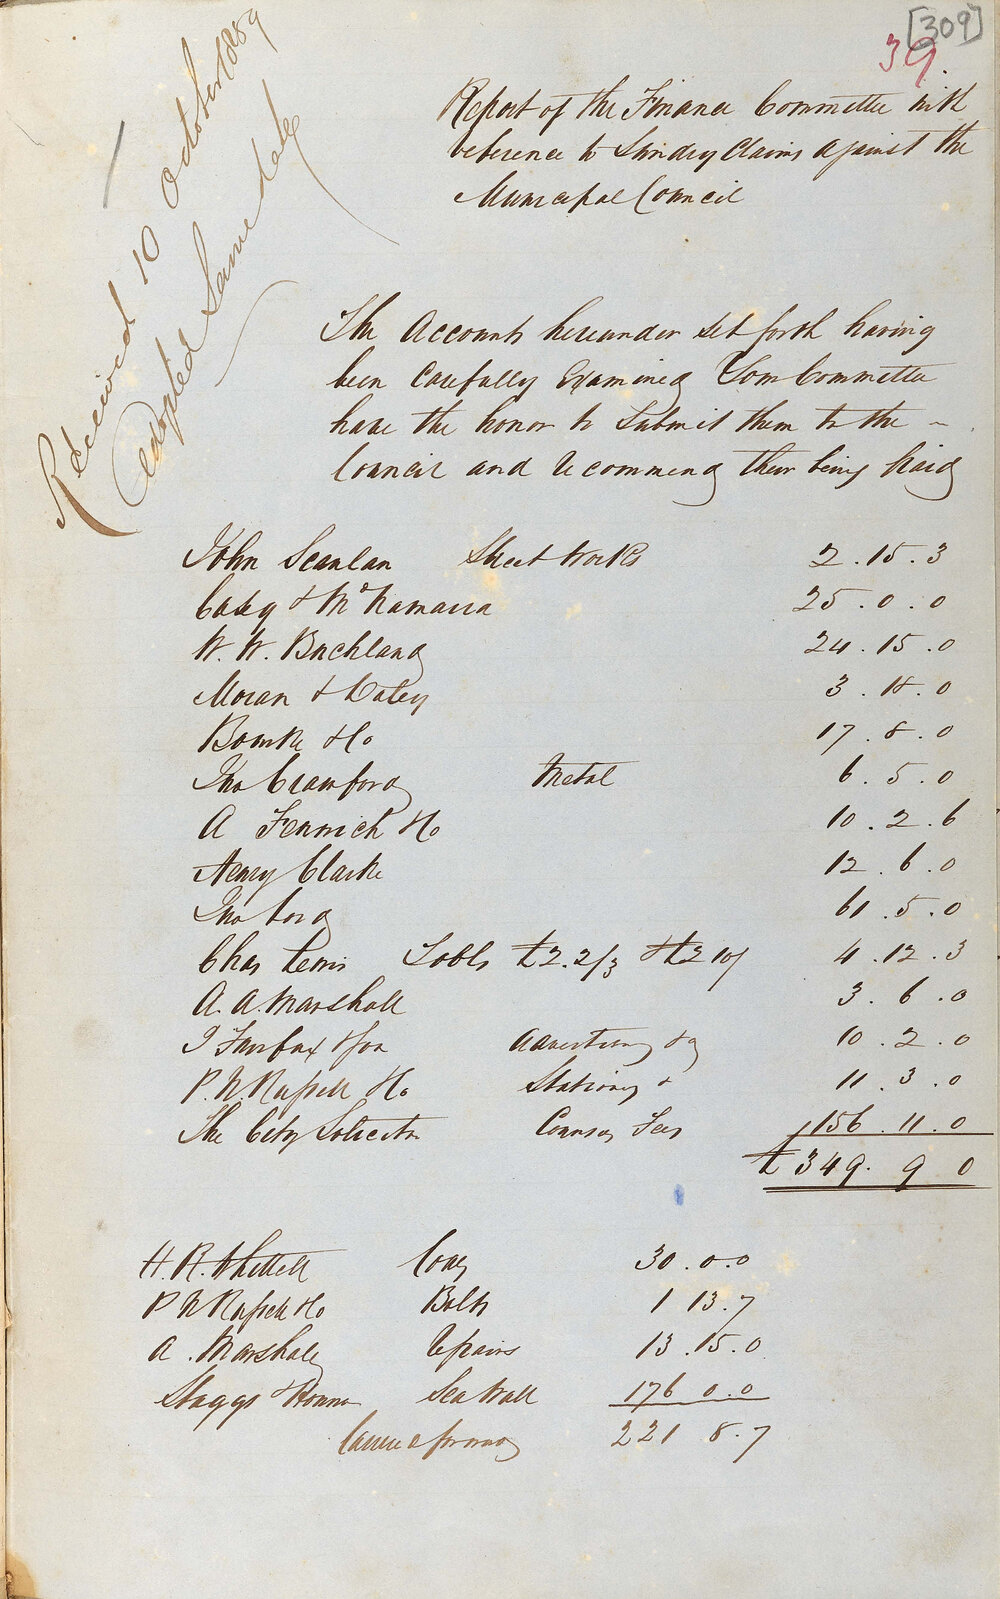 [309]
39
Received 10 October 1859
Adopted Same date
Report of the Finance Committee with
reference to Sundry Claims against the
Municipal Council
The Accounts hereunder set forth having
been Carefully Examined Your Committee
have the honor to Submit them to the
Council and recommend their being paid
John Scanlan Street Works 2 . 15 . 3
Casey & McNamara 25 . 0 . 0
W. W. Buckland 24 . 15 . 0
Moran & Daley 3 . 18 . 0
Bourke & Co 17 . 8 . 0
Jno Crawford Metal 6 . 5 . 0
A Fenwick & Co 10 . 2 . 6
Henry Clarke 12 . 6 . 0
Jno Lord 61 . 5 . 0
Chas Lewis Tools £2.2/3 & £2 10/ 4 . 12 . 3
A. A. Marshall 3 . 6 . 0
J Fairfax & Son Advertising &c 10 . 2 . 0
P. N. Russell & Co 11 . 3 . 0
The City Solicitor Counsel Fees 156 . 11 . 0
£ 349 . 9 0
H. R. Whittell Coal 30 . 0 . 0
P N Russell & Co Bolts 1 13 . 7
A . Marshall repairs 13 . 15 . 0
Staggs & Sea Wall 176 0 . 0
Carried forward 221 8 . 7